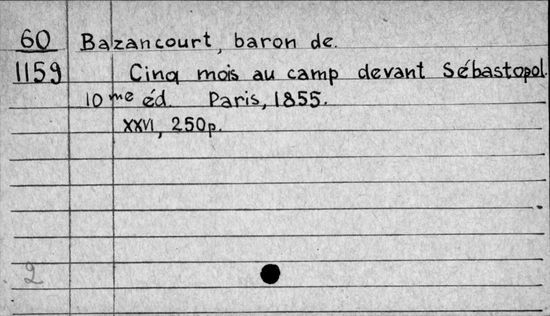 60 Bazancourt, baron de.
1159 Cinq mois au camp devant Sébastopol.
10me éd. Paris, 1855.
XXVI, 250p.
2